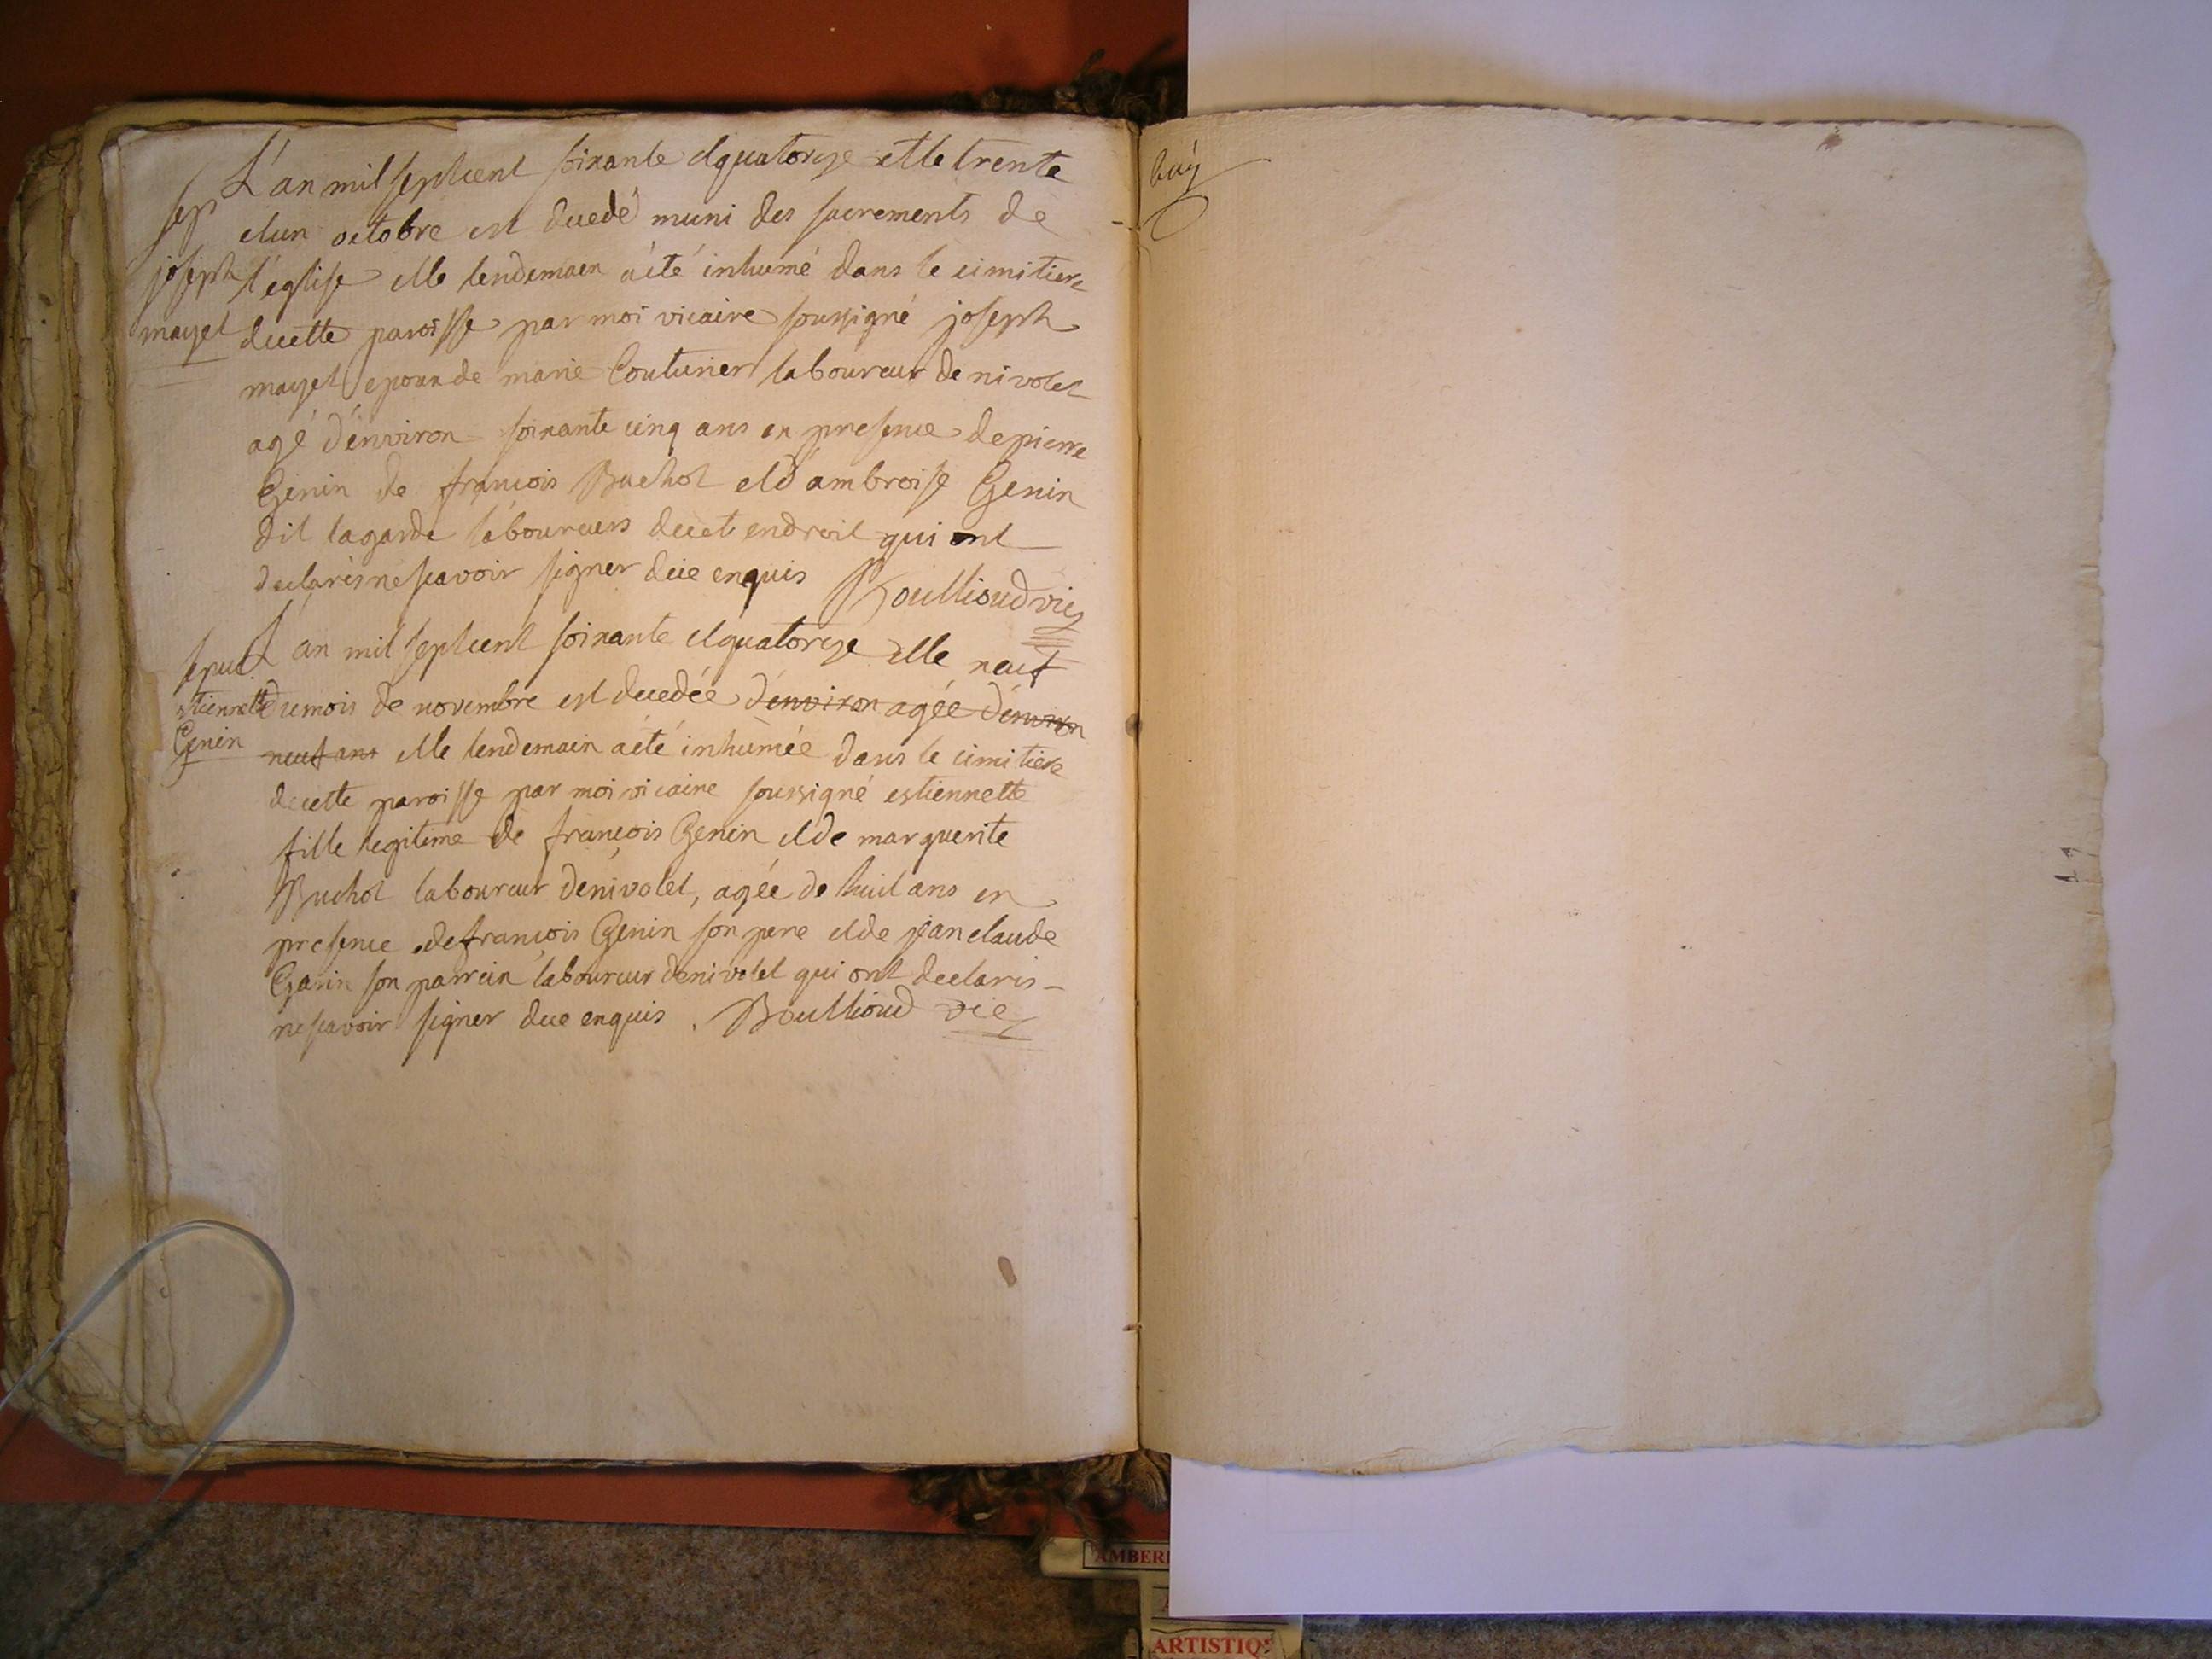 L'an mil septcent soixante etquatorze etle trente
sep
etun octobre est decedé muni des sacrements de
joseph
l'eglise etle lendemain aété inhumé dans le cimitiere
mayet
decette paroisse par moi vicaire soussigné joseph
mayet epoux de marie Couturier laboureur de nivolet
agé d'environ soixante cinq ans en presence de pierre
Genin de françois Buchot etd'ambroise Genin
dit lagarde laboureurs decet endroit qui ont
declarés nescavoir signer dece enquis Boullioud vic
L'an mil septcent soixante etquatorze etle neuf
sepul
estiennette
dumois de novembre est decedée d'environ agée d'environ
Genin
neuf ans etle lendemain aété inhumée dans le cimitiere
decette paroisse par moi vicaire soussigné estiennette
fille legitime de françois Genin etde marguerite
Buchot laboureur denivolet, agée de huit ans en
presence defrançois Genin son pere etde jean claude
Garin son parrein laboureur denivolet qui ont declarés
nescavoir signer dece enquis. Boullioud vic
AMBER
ARTISTIQ